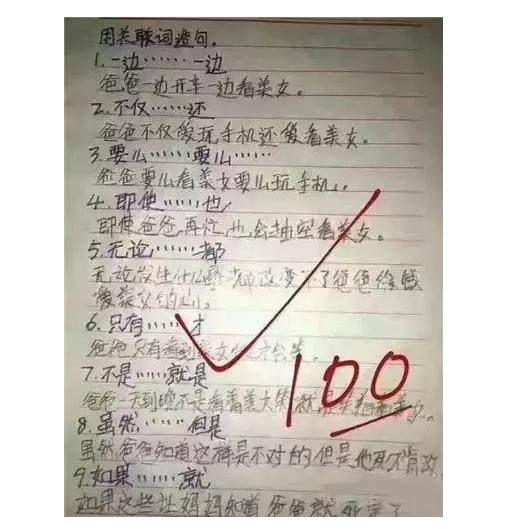 用关联词造句。
1.一边……一边
爸爸一边开车一边看美女。
2.不仅……还
爸爸不仅爱玩手机还爱看美女。
3.要么……要么……
爸爸要么看美女要么玩手机。
4.即使……也
即使爸爸再忙,也会抽空看美女。
5.无论……都
无论发生什么都改变不了爸爸
爱美女的心。
6.只有……才
爸爸只有看到美女才会笑。
7.不是……就是
爸爸一天到晚不是看着美女笑就
8.虽然……但是
虽然爸爸知道这样是不对的但是他死不肯改
9.如果……就
如果这些让妈妈知道爸爸就死定了
100